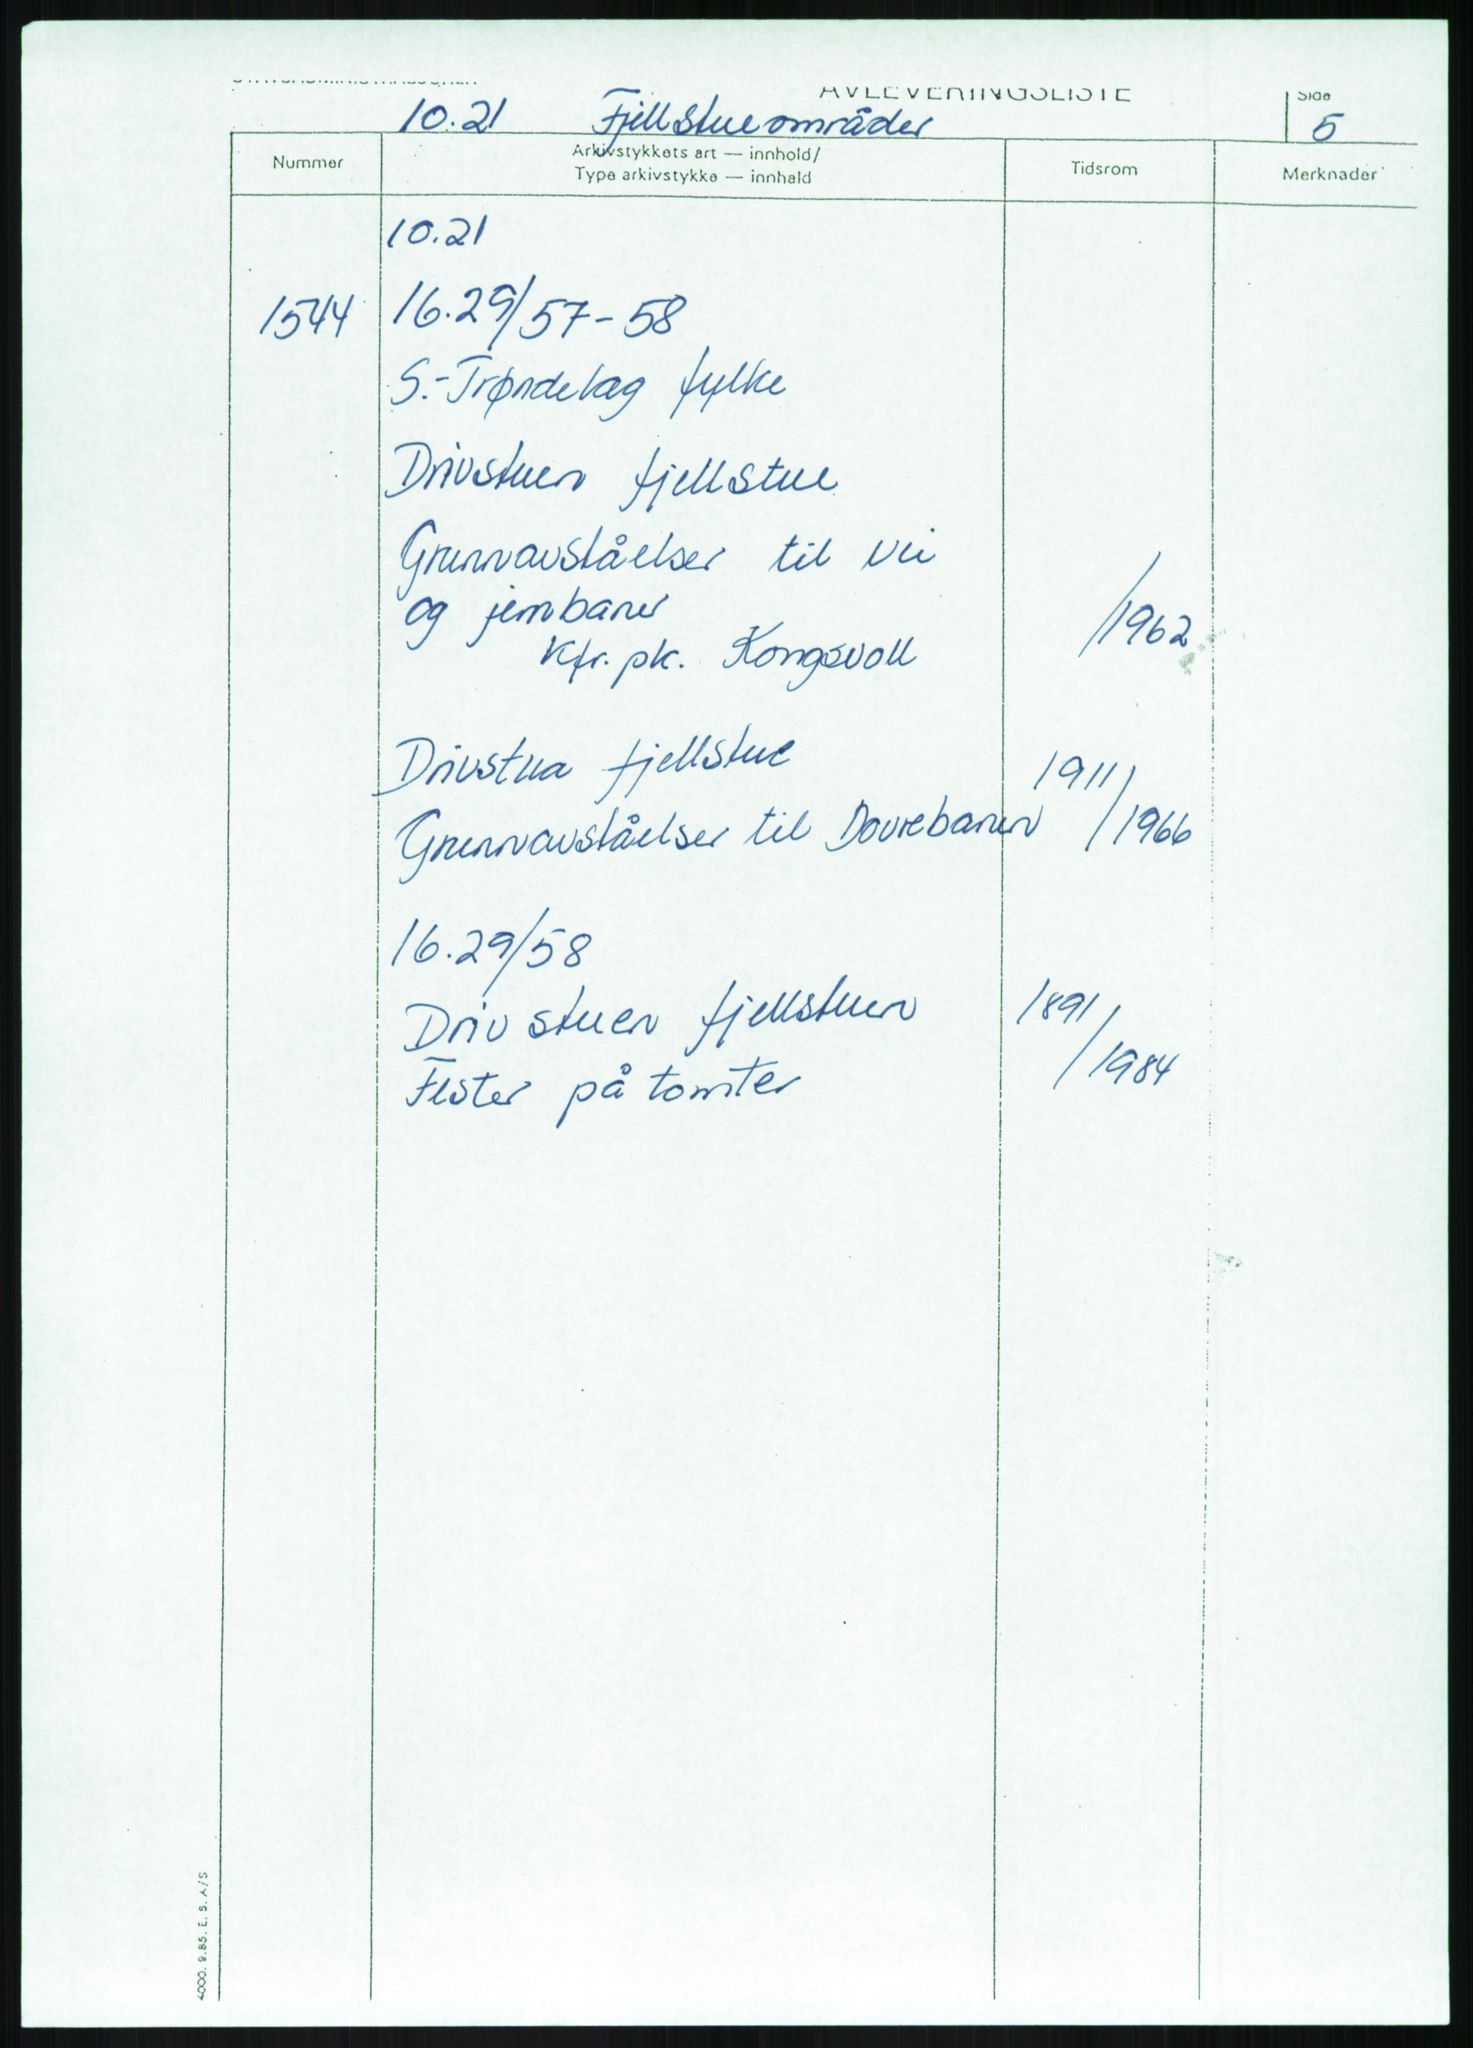 AVLEVERINGSLISTE
Side
10.21 Fjellstueområder
5
Nummer
Arkivstykkets art — innhold/
Type arkivstykke — innhald
Tidsrom
Merknader
10.21
1544 16.29/57-58
S.-Trøndelag fylke
Drivstuen fjellstue
Grunnavståelser til vei
og jernbaner /1962
Kfr. pk. Kongsvoll
Drivstua fjellstue 1911/
Grunnavståelser til Dovrebanen /1966
16.29/58
Drivstuen fjellstuen 1891/
Fester på tomter /1984
4000. 9.85. E. S. A/S